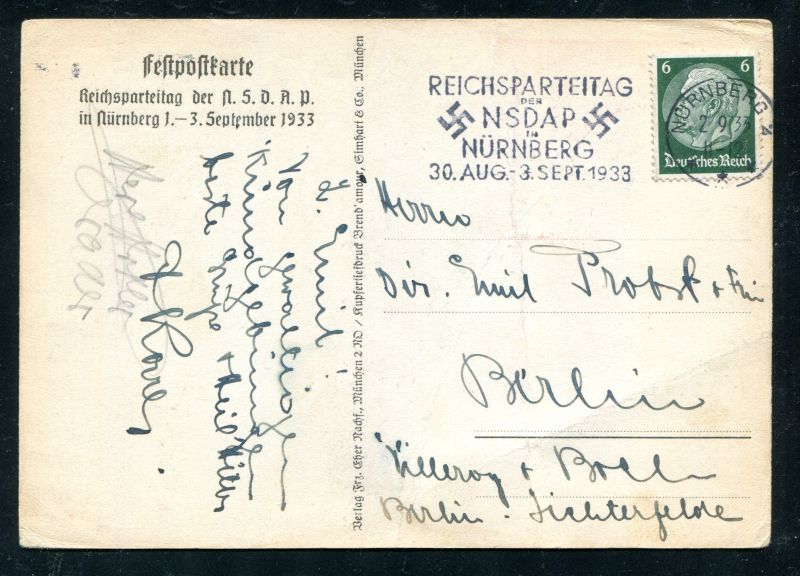 Festpostkarte
Reichsparteitag der N. S. D. A. P.
in Nürnberg 1.–3. September 1933
L. Emil!
Von gewaltigen
beste Grüße + Heil Hitler
Verlag Frz. Eher Nachf., München 2 NO / Kupfertiefdruck Brend'amour, Simhart & Co., München
REICHSPARTEITAG
DER
NSDAP
IN
NÜRNBERG
30. AUG.-3. SEPT. 1933
6 6
Deutsches Reich
NÜRNBERG 2
2.9.33
Herrn
Dir. Emil Probst + Frau
Berlin
Villeroy + Boch
Berlin-Lichterfelde